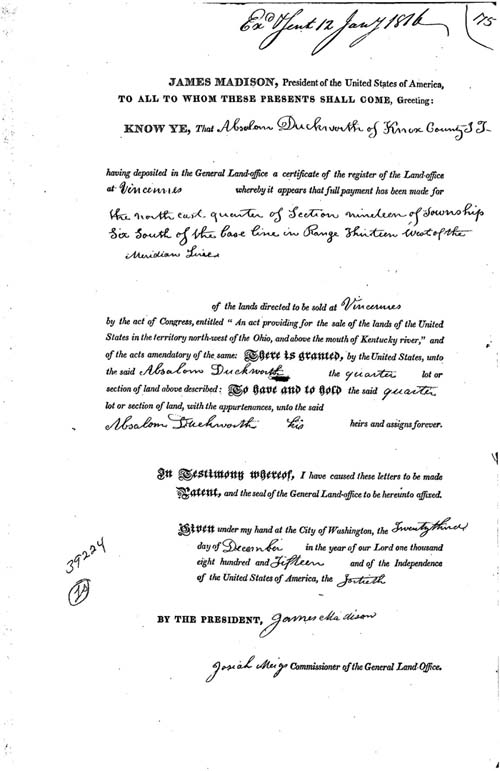 Ex^d & Sent 12 Jan^y 1816
75
JAMES MADISON, President of the United States of America,
TO ALL TO WHOM THESE PRESENTS SHALL COME, Greeting:
KNOW YE, That Absalom Duckworth of Knox County I T
having deposited in the General Land-office a certificate of the register of the Land-office
at Vincennes whereby it appears that full payment has been made for
the north east quarter of Section nineteen of Township
Six South of the base line in Range Thirteen West of the
Meridian Line
of the lands directed to be sold at Vincennes
by the act of Congress, entitled “An act providing for the sale of the lands of the United
States in the territory north-west of the Ohio, and above the mouth of Kentucky river,” and
of the acts amendatory of the same: There is granted, by the United States, unto
the said Absalom Duckworth the quarter lot or
section of land above described: To have and to hold the said quarter
lot or section of land, with the appurtenances, unto the said
Absalom Duckworth his heirs and assigns forever.
In Testimony whereof, I have caused these letters to be made
Patent, and the seal of the General Land-office to be hereunto affixed.
Given under my hand at the City of Washington, the Twenty third
day of December in the year of our Lord one thousand
eight hundred and Fifteen and of the Independence
of the United States of America, the fortieth
39224
BY THE PRESIDENT, James Madison
Josiah Meigs Commissioner of the General Land-Office.